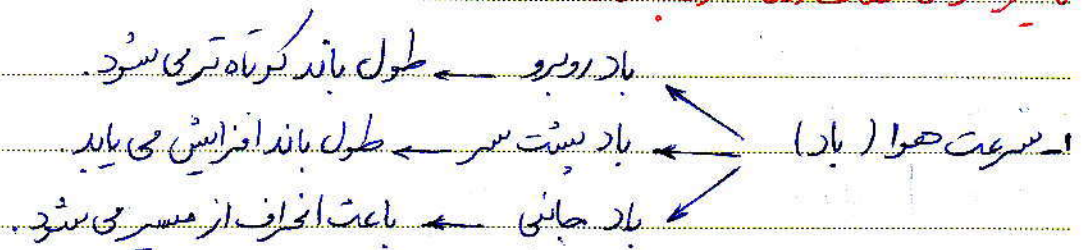 باد روبرو ← طول باند کوتاه تر می شود.
۱_ سرعت هوا (باد) ← باد پشت سر ← طول باند افزایش می یابد.
باد جانبی ← باعث انحراف از مسیر می شود.